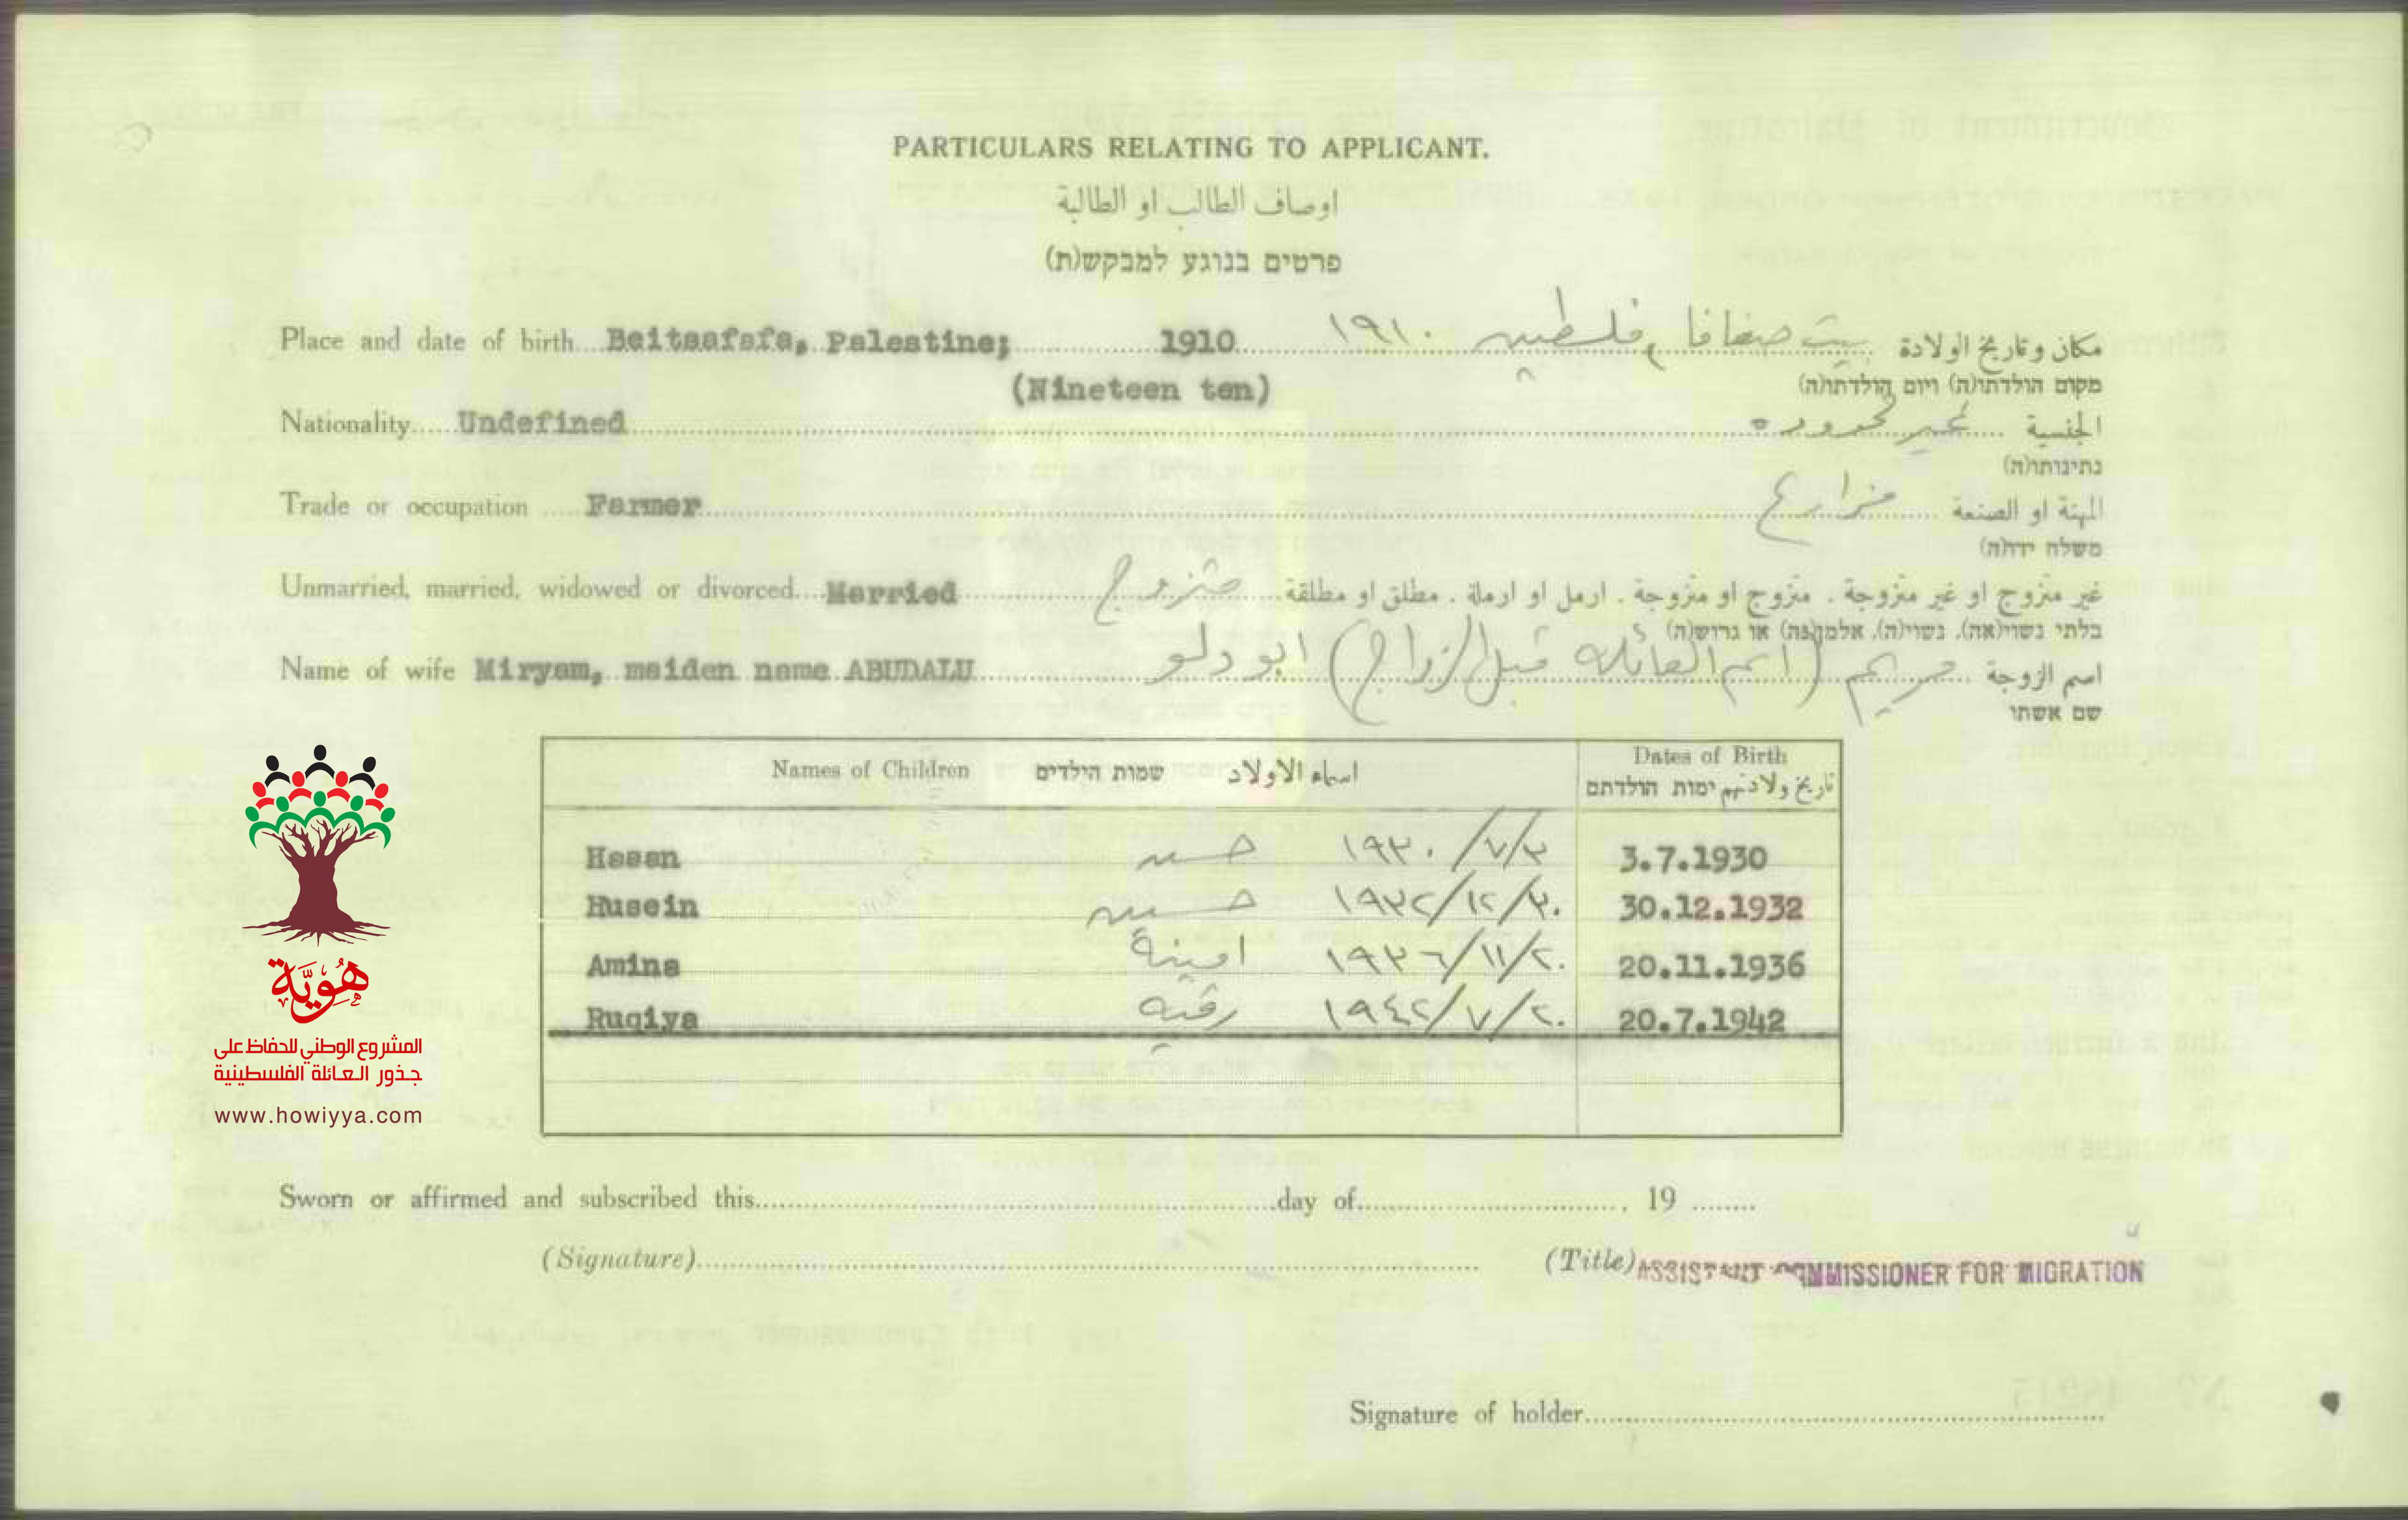 PARTICULARS RELATING TO APPLICANT.
اوصاف الطالب او الطالبة
פרטים בנוגע למבקש(ת)
Place and date of birth Beitsafafa, Palestine; 1910 ١٩١٠ بيت صفافا, فلسطين مكان وتاريخ الولادة
(Nineteen ten) מקום הולדתו(ה) ויום הולדתו(ה)
Nationality Undefined غير محدوده الجنسية
נתינותו(ה)
Trade or occupation Farmer مزارع المهنة او الصنعة
משלח ידו(ה)
Unmarried, married, widowed or divorced Married متزوج غير متزوج او غير متزوجة . متزوج او متزوجة . ارمل او ارملة . مطلق او مطلقة
בלתי נשוי(אה). נשוי(ה). אלמן(נה) או גרוש(ה)
Name of wife Miryam, maiden name ABUDALU مريم (اسم العائلة قبل الزواج) ابو دلو اسم الزوجة
שם אשתו
Names of Children שמות הילדים اسماء الاولاد
Dates of Birth
ימות הולדתם تاريخ ولادتهم
Hasan حسن ١٩٣٠/٧/٣ 3.7.1930
Husein حسين ١٩٣٢/١٢/٣٠ 30.12.1932
Amina امينة ١٩٣٦/١١/٢٠ 20.11.1936
Ruqiya رقيه ١٩٤٢/٧/٢٠ 20.7.1942
هوية
المشروع الوطني للحفاظ على
جذور العائلة الفلسطينية
www.howiyya.com
Sworn or affirmed and subscribed this day of , 19
(Signature) (Title) ASSISTANT COMMISSIONER FOR MIGRATION
Signature of holder